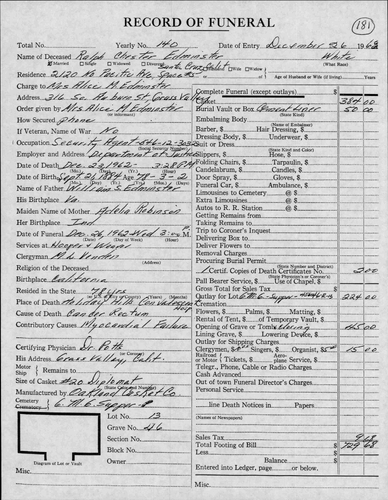 RECORD OF FUNERAL
168
Total No. Yearly No. 140 Date of Entry December 26 1962
Name of Deceased Ralph Chester Edminster White
Married Single Widowed Divorced (What Race)
Residence 2120 No Pacific Ave Husband Wife Widow Age of Husband or Wife (if living)
Charge to Mrs Alice M. Edminster
Address 316 So. Auburn St. Grass Valley
Order given by Mrs Alice M. Edminster
(or informant)
How Secured phone
If Veteran, Name of War No
Occupation Security Agent
(Social Security Number)
Employer and Address Department of Justice
Date of Death Dec 23, 1962 3:28 PM
Date of Birth Sept 21, 1884 Age 78-3-2
Name of Father William S. Edminster
His Birthplace Va.
Maiden Name of Mother Adelia Robinson
Her Birthplace Ind
Date of Funeral Dec 26, 1962 Wed 3:00 P.M.
Services at Hooper & Weaver
Clergyman
Religion of the Deceased
Birthplace California
Resided in the State 78 yrs (Months)
Place of Death Convalescent Hosp
Cause of Death Cancer Rectum
Contributory Causes Myocardial Failure
Certifying Physician Dr.
(or Coroner)
His Address Grass Valley, Calif.
Motor Ship Remains to
Size of Casket #20 Diplomat
(State Color and Number)
Manufactured by Oakland Casket Co
Cemetery Crematory
Lot No. 13
Grave No. 46
Section No.
Block No.
Owner
Diagram of Lot or Vault
Misc.
Complete Funeral (except outlays)
Casket 384 00
Burial Vault or Box 50 00
(State Kind)
Embalming Body
Barber, Hair Dressing,
Dressing Body, Underwear,
(State Kind and Color)
Slippers, Hose,
Folding Chairs, Tarpaulin,
Candelabrum, Candles,
Door Spray, Gloves,
Funeral Car, Ambulance
Limousines to Cemetery @ $
Extra Limousines @ $
Autos to R. R. Station @ $
Getting Remains
Taking Remains
Trip to Coroner's Inquest
Delivering Box to
Deliver Flowers to
Removal Charges
Procuring Burial Permit
1 Certif. Copies of Death Certificate 2 00
(State Physician's or Coroner's)
Pall Bearer Service, Use of Chapel,
Gross Total for Sales Tax
Outlay for Lot 224 00
Cremation
Flowers, Palms, Matting,
Rental of Tent, of Temporary Vault,
Opening of Grave or Tomb 45 00
Lining Grave, Lowering Device,
Outlay for Shipping Charges
Clergymen, Singers, Organist, 15 00
Railroad or Motor Tickets, Aeroplane Service,
Telegr., Phone, Cable or Radio Charges
Cash Advanced
Out of town Funeral Director's Charges
Personal Service
line Death Notices in Papers
(Names of Newspapers)
Sales Tax 9 68
Total Footing of Bill 729 68
Less
Balance
Entered into Ledger, page or below.
Misc.